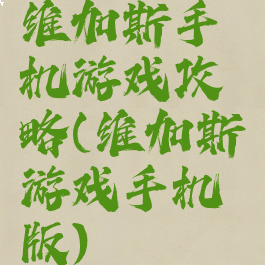 维加斯手
机游戏攻
略(维加斯
游戏手机
版)